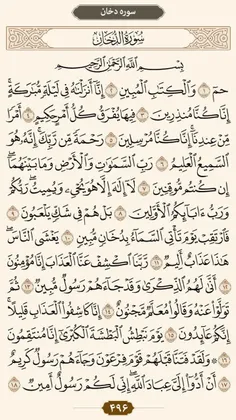 سوره دخان
سُورَةُ الدُّخَانِ
بِسْمِ اللَّهِ الرَّحْمَٰنِ الرَّحِيمِ
حمٓ ۝١ وَالْكِتَابِ الْمُبِينِ ۝٢ إِنَّا أَنزَلْنَاهُ فِي لَيْلَةٍ مُّبَارَكَةٍ ۚ
إِنَّا كُنَّا مُنذِرِينَ ۝٣ فِيهَا يُفْرَقُ كُلُّ أَمْرٍ حَكِيمٍ ۝٤ أَمْرًا
مِّنْ عِندِنَا ۚ إِنَّا كُنَّا مُرْسِلِينَ ۝٥ رَحْمَةً مِّن رَّبِّكَ ۚ إِنَّهُ هُوَ
السَّمِيعُ الْعَلِيمُ ۝٦ رَبِّ السَّمَاوَاتِ وَالْأَرْضِ وَمَا بَيْنَهُمَا ۖ
إِن كُنتُم مُّوقِنِينَ ۝٧ لَا إِلَٰهَ إِلَّا هُوَ يُحْيِي وَيُمِيتُ ۖ رَبُّكُمْ
وَرَبُّ آبَائِكُمُ الْأَوَّلِينَ ۝٨ بَلْ هُمْ فِي شَكٍّ يَلْعَبُونَ ۝٩
فَارْتَقِبْ يَوْمَ تَأْتِي السَّمَاءُ بِدُخَانٍ مُّبِينٍ ۝١٠ يَغْشَى النَّاسَ ۖ
هَٰذَا عَذَابٌ أَلِيمٌ ۝١١ رَّبَّنَا اكْشِفْ عَنَّا الْعَذَابَ إِنَّا مُؤْمِنُونَ
۝١٢ أَنَّىٰ لَهُمُ الذِّكْرَىٰ وَقَدْ جَاءَهُمْ رَسُولٌ مُّبِينٌ ۝١٣ ثُمَّ
تَوَلَّوْا عَنْهُ وَقَالُوا مُعَلَّمٌ مَّجْنُونٌ ۝١٤ إِنَّا كَاشِفُو الْعَذَابِ قَلِيلًا ۚ
إِنَّكُمْ عَائِدُونَ ۝١٥ يَوْمَ نَبْطِشُ الْبَطْشَةَ الْكُبْرَىٰ إِنَّا مُنتَقِمُونَ
۝١٦ ۞ وَلَقَدْ فَتَنَّا قَبْلَهُمْ قَوْمَ فِرْعَوْنَ وَجَاءَهُمْ رَسُولٌ كَرِيمٌ
۝١٧ أَنْ أَدُّوا إِلَيَّ عِبَادَ اللَّهِ ۖ إِنِّي لَكُمْ رَسُولٌ أَمِينٌ ۝١٨
۴۹۶